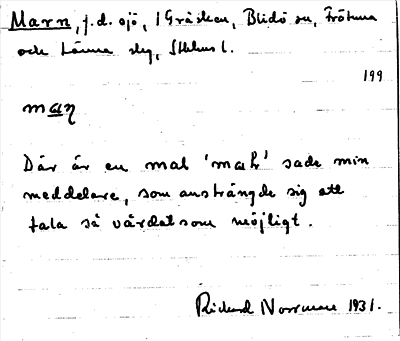 Marn, f.d. sjö, i Gräsken, Blidö sn, Frötuna
och Länna slg, Sthlms l.
199
maɳ
Där är en mal 'maɽ' sade min
meddelare, som ansträngde sig att
tala så vårdat som möjligt.
Rickard Norrman 1931.